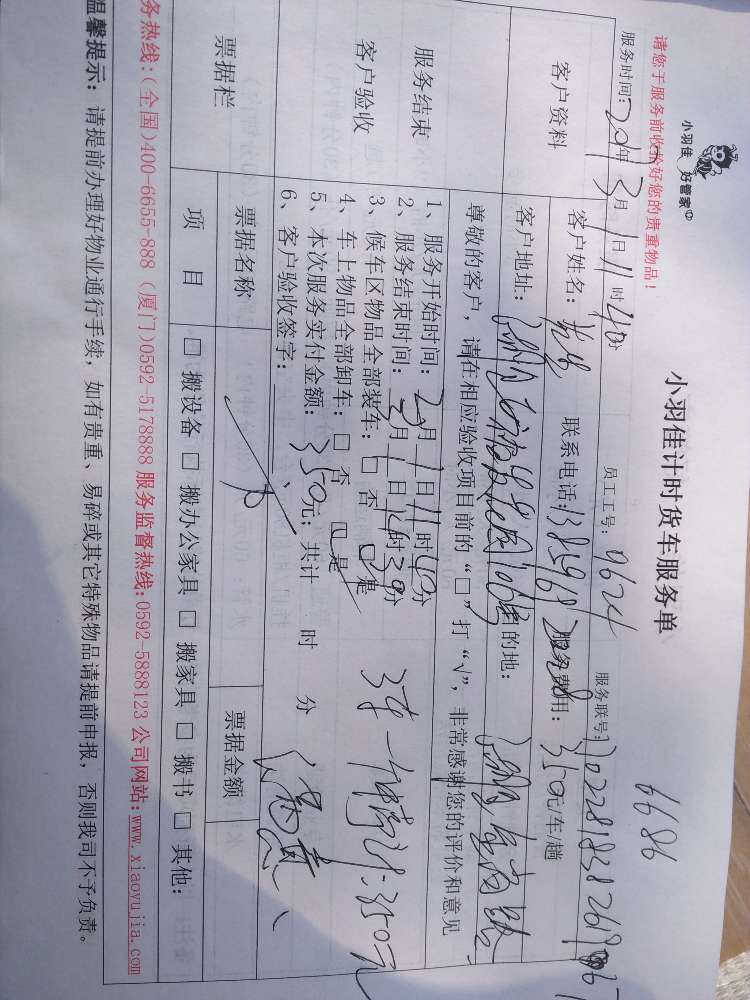 小羽佳 好管家
小羽佳计时货车服务单
6686
请您于服务前收捡好您的贵重物品！
服务时间：2017年 3月 1日 11时 40分 员工工号：9624 服务联号：
客户资料
客户姓名： 联系电话： 服务费用：350元/车/趟
客户地址： 目的地：
尊敬的客户，请在相应验收项目前的“□”打“√”，非常感谢您的评价和意见
服务结束
客户验收
1、服务开始时间：3月 1日 11时 40分
2、服务结束时间：3月 1日 14时 30分
3、候车区物品全部装车：□ 否 □ 是
4、车上物品全部卸车：□ 否 □ 是
5、本次服务实付金额：350元；共计 时 分
6、客户验收签字：
350元
票据栏
票据名称 票据金额
项 目 □ 搬设备 □ 搬办公家具 □ 搬家具 □ 搬书 □ 其他：
务热线：（全国）400-6655-888 （厦门）0592-5178888 服务监督热线：0592-5888123 公司网站：www.xiaoyujia.com
温馨提示：请提前办理好物业通行手续，如有贵重、易碎或其它特殊物品请提前申报，否则我司不予负责。